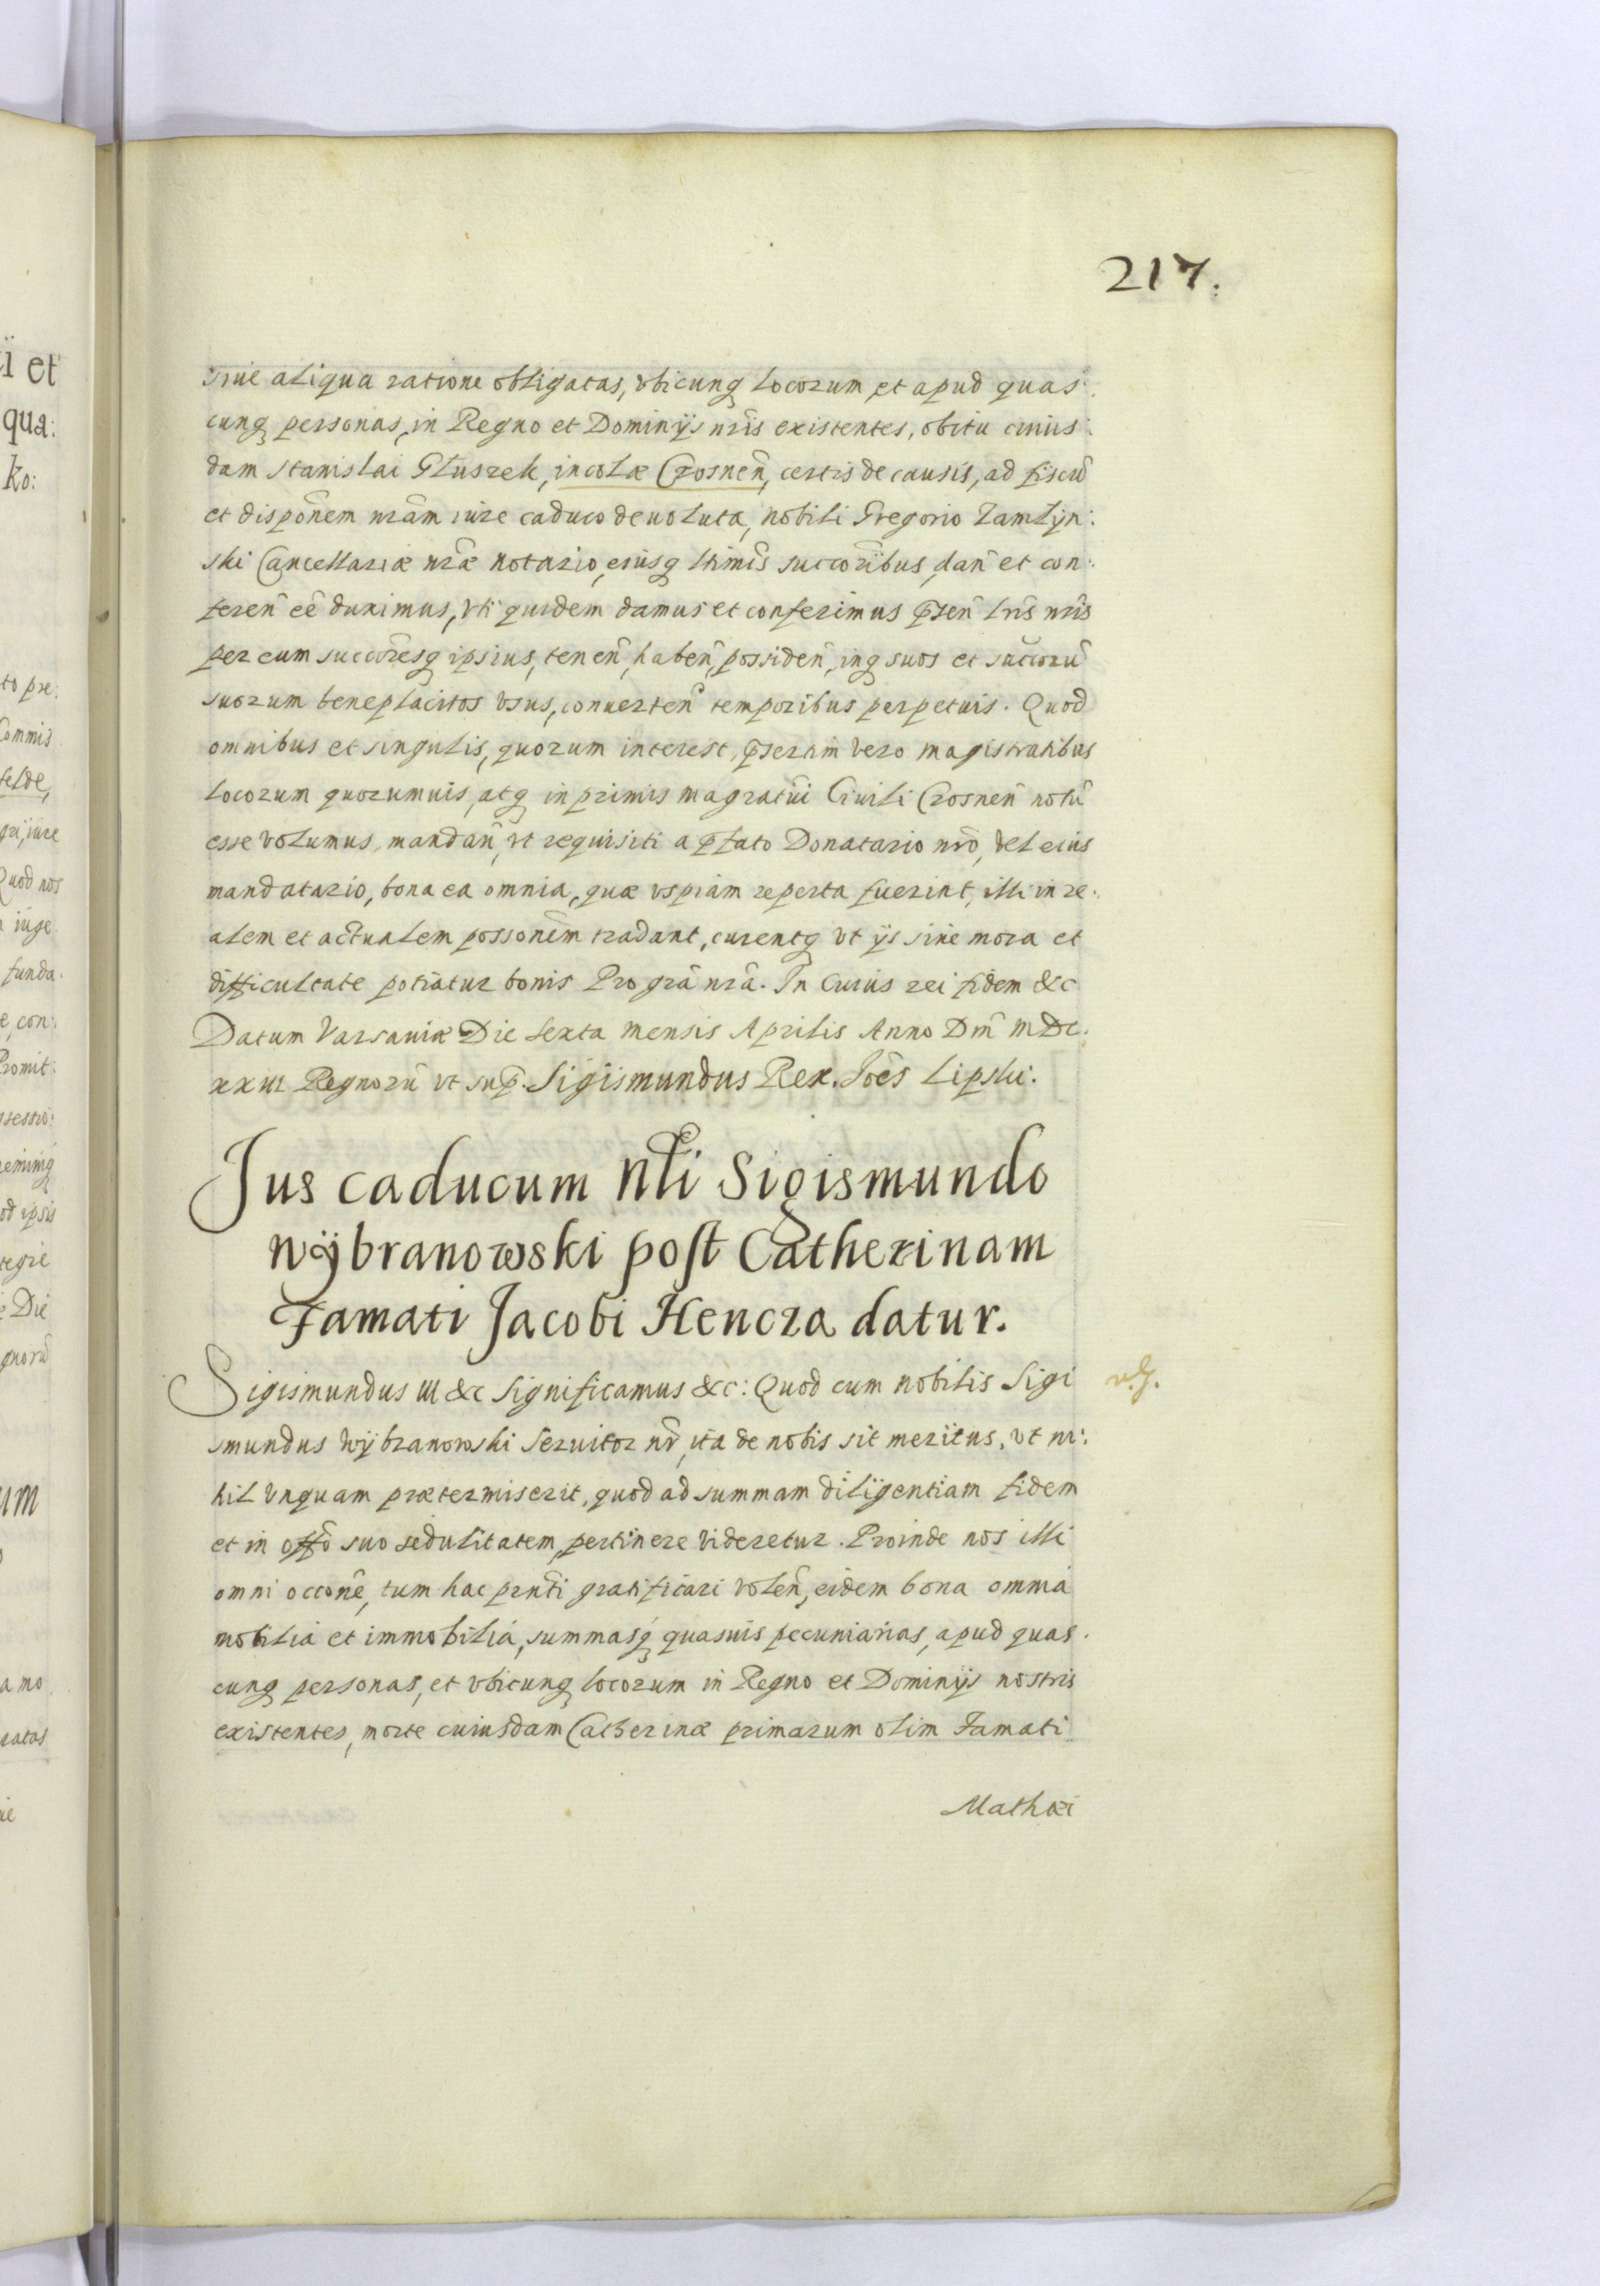 217.
siue aliqua ratione obligatas, vbicunq locorum et apud quas:
cunq personas, in Regno et Dominijs nris existentes, obitu cuius:
dam Stanislai Gluszek, incolæ Crosnen̄, certis de causis, ad fiscū
et dispōnem nrām iure caduco deuoluta, nobili Gregorio Zamlÿn:
ski Cancellariæ nræ notario, eiusq ltimis succoribus, dan̄ et con:
feren̄ eē duximus, vti quidem damus et conferimus p̄sen̄ lris nris
per eum succoresq ipsius, tenen̄, haben̄, possiden̄, inq suos et succorū
suorum beneplacitos vsus, conuerten̄ temporibus perpetuis. Quod
omnibus et singulis, quorum interest, p̄sertim vero magistratibus
locorum quorumuis, atq in primis magratui Ciuili Crosnen̄ notū
esse volumus, mandan̄, vt requisiti a p̄fato Donatario nro, vel eius
mandatario, bona ea omnia, quæ vspiam reperta fuerint, illi in re:
alem et actualem possonem tradant, curentq vt ijs sine mora et
difficultate potiatur bonis Pro gra nra. In Cuius rei fidem &c
Datum Varsauiæ Die Sexta Mensis Aprilis Anno Dni MDC.
XXIII Regnorū vt sup. Sigismundus Rex. Joēs Lipski.
Jus caducum Nli Sigismundo
Wÿbranowski post Catherinam
Famati Jacobi Hencza datur.
Sigismundus III &c Significamus &c: Quod cum nobilis Sigi
smundus Wÿbranowski Seruitor nr, ita de nobis sit meritus, vt ni:
hil vnquam prætermiserit, quod ad summam diligentiam fidem
et in offo suo sedulitatem, pertinere videretur. Proinde nos illi
omni occone, tum hac prnti gratificari volen̄, eidem bona omnia
mobilia et immobilia, summasq quasuis pecuniarias, apud quas.
cunq personas, et vbicunq locorum in Regno et Dominijs nostris
existentes, morte cuiusdam Catherinæ primarum olim Famati
Mathæi